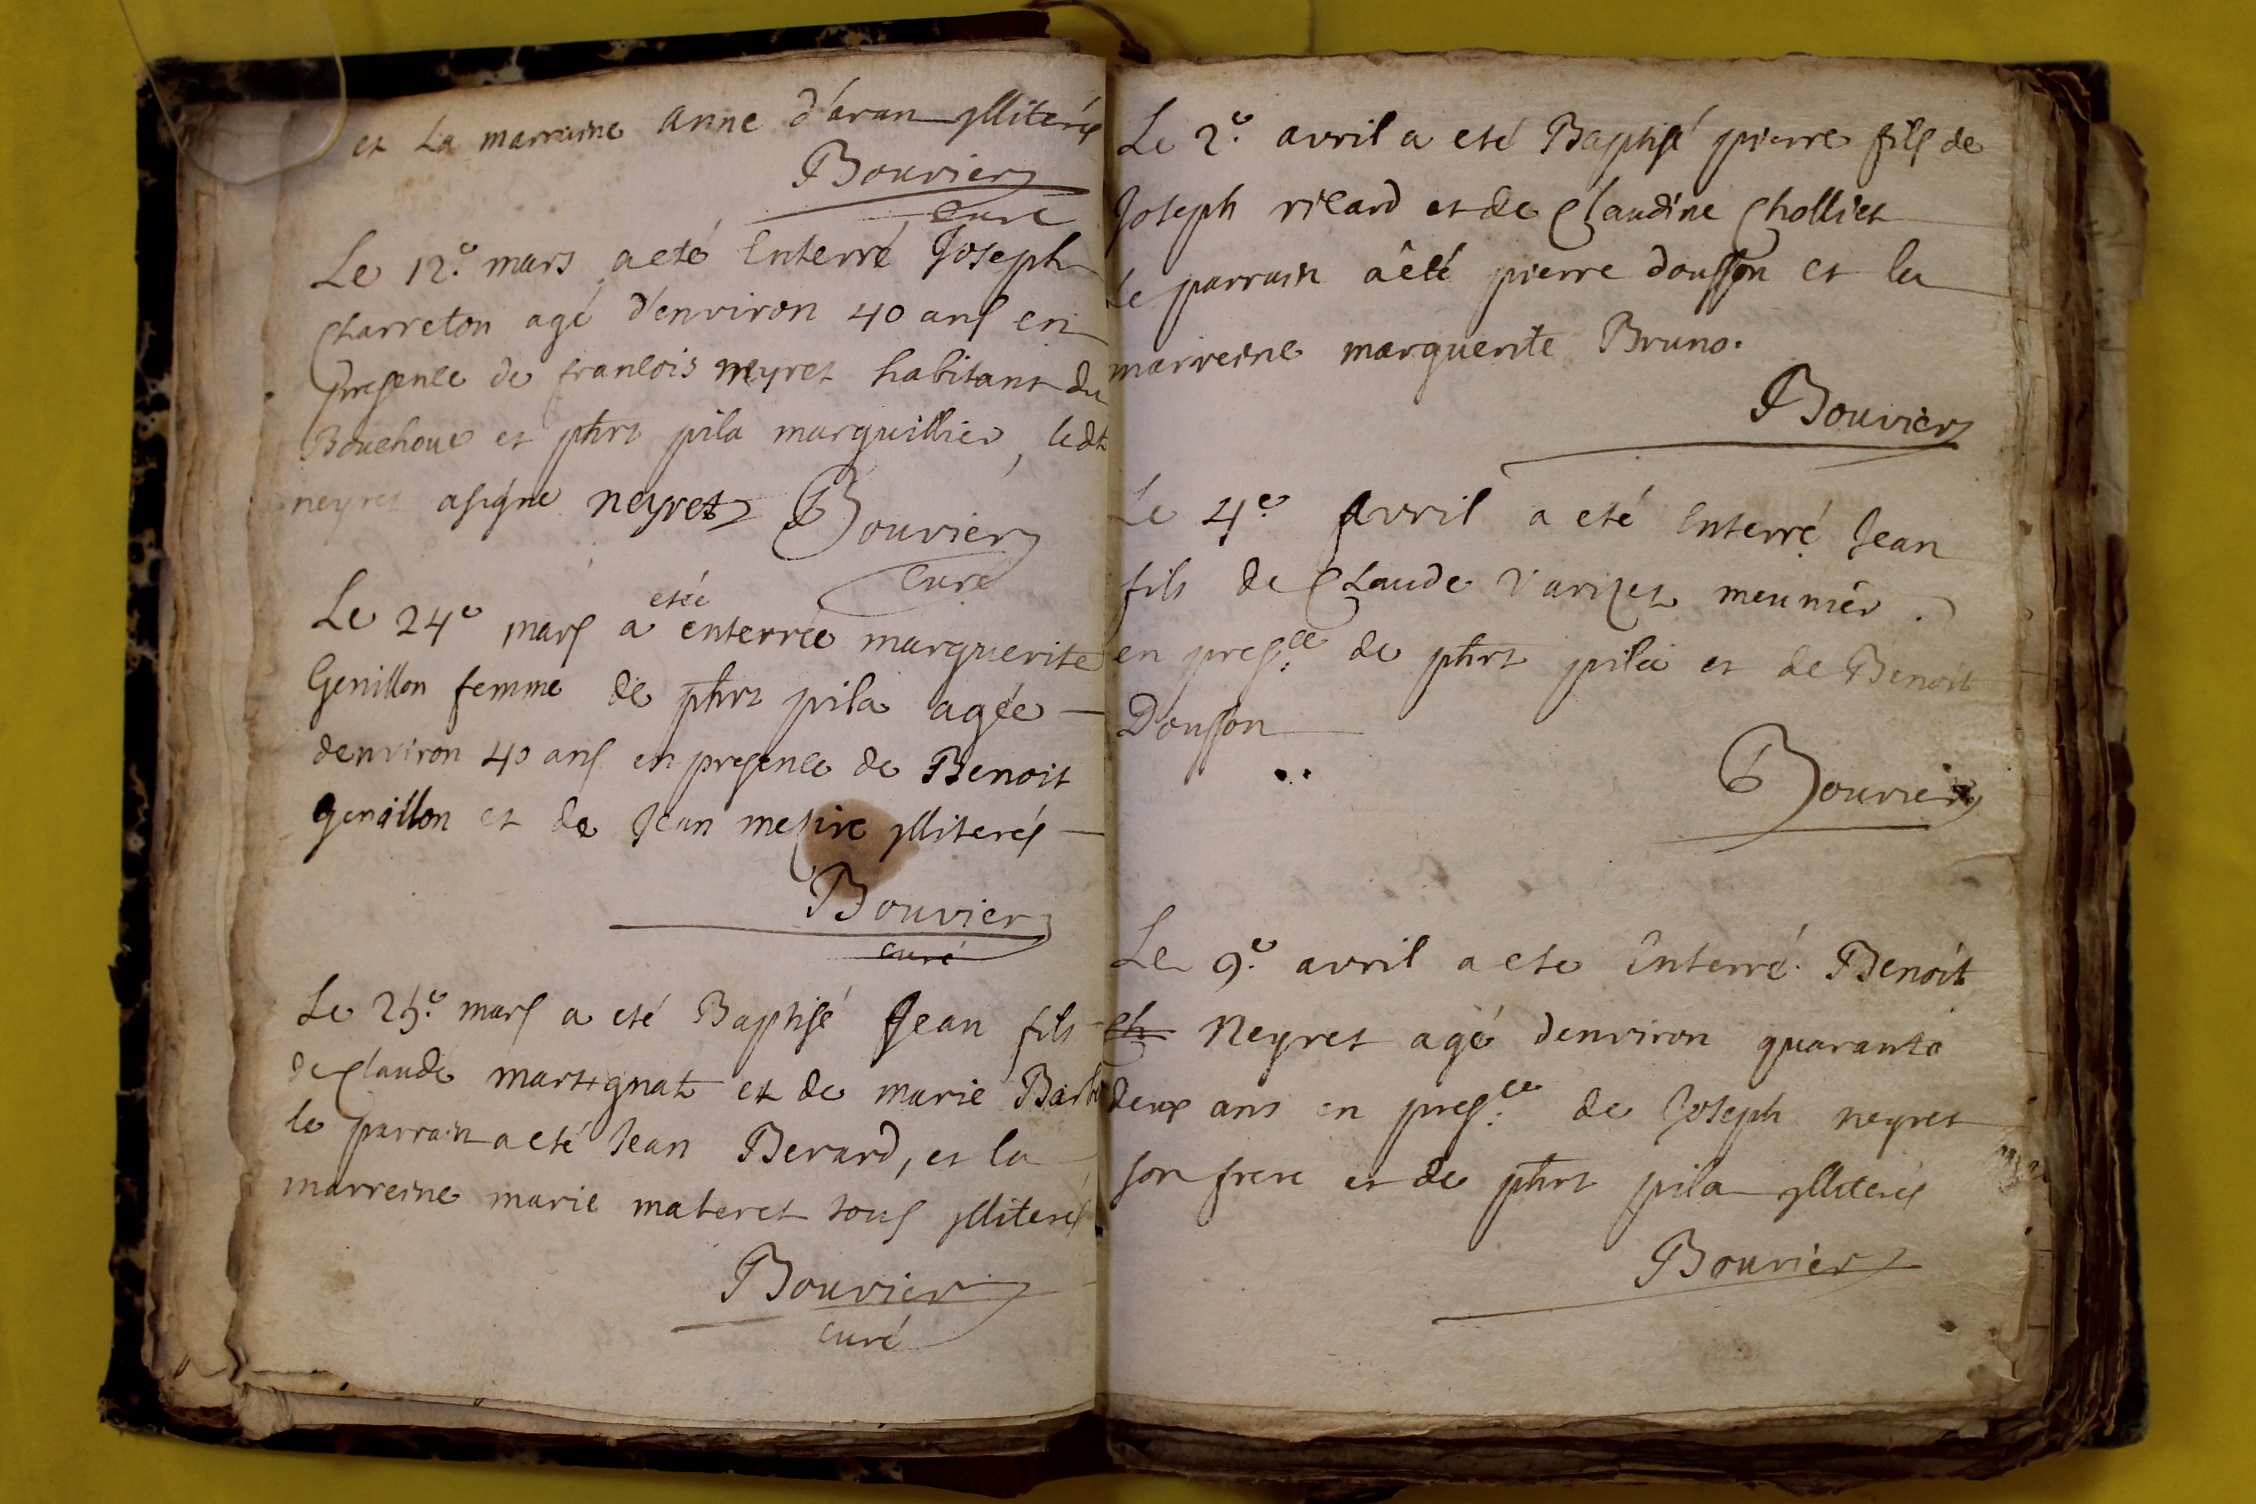 et La marraine anne d'aran ylliterés
Bouvier
curé
Le 12.e mars a eté Enterré Joseph
Charreton agé d'environ 40 ans en
presence de francois neyret habitant du
Bouchoux et phrt pila marguillier, ledt
neyret a signe neyret Bouvier
curé
Le 24e mars a etée enterrée marguerite
Genillon femme de phrt pila agée
denviron 40 ans en presence de Benoit
genillon et de Jean mesire ylliterés
Bouvier
curé
Le 25.e mars a eté Baptisé Jean fils
de Claude martignat et de marie Barbe
le parrain a eté Jean Berard, et la
marreine marie materet tous ylliterés
Bouvier
curé
Le 2.e avril a eté Baptisé pierre fils de
Joseph ricard et de Claudine Chollier
Le parrain a eté pierre dousson et la
marreine marguerite Bruno.
Bouvier
Le 4.e Avril a eté Enterré Jean
fils de Claude Varizet meunier.
en pres.ce de phrt pila et de Benoit
Dousson
Bouvier
Le 9.e avril a ete Enterré Benoit
Neyret agé denviron quarante
deux ans en pres.ce de Joseph neyret
son frere et de phrt pila ylliterés
Bouvier